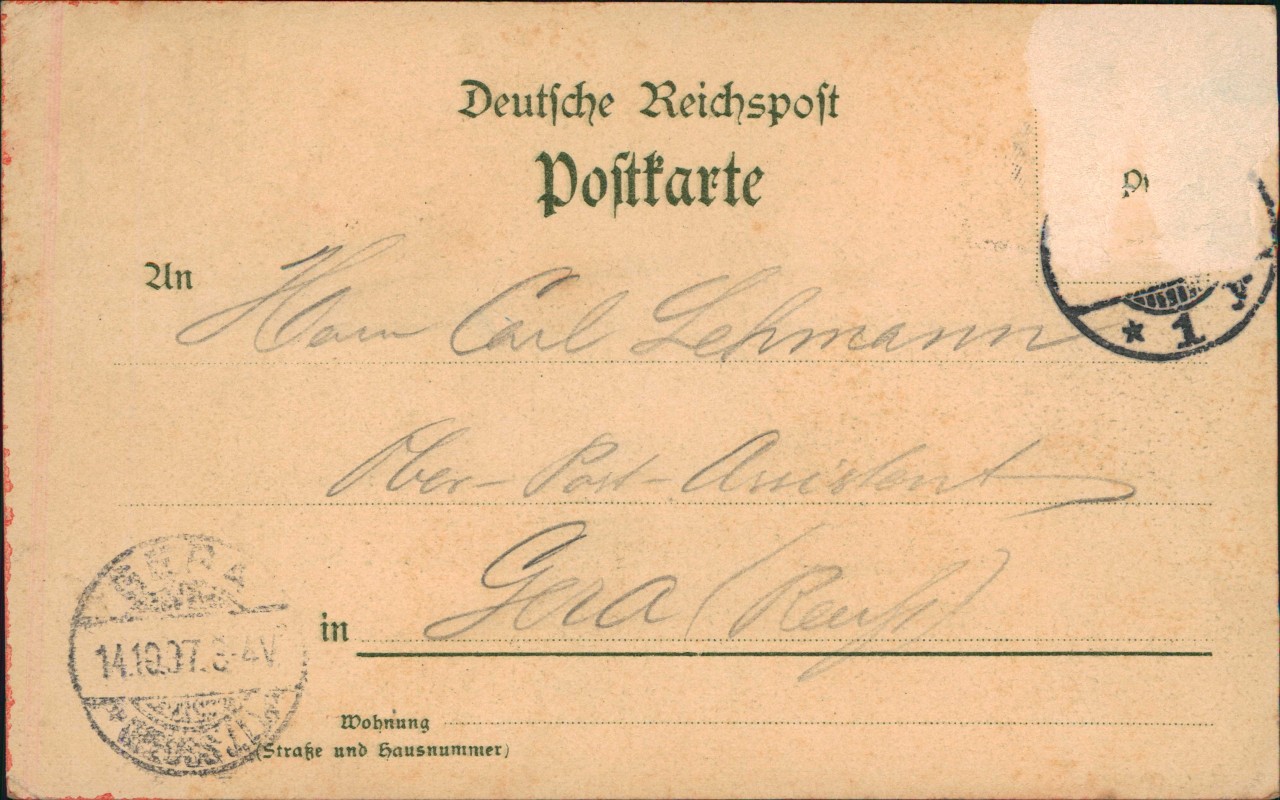 Deutsche Reichspost
Postkarte
An
Herrn Carl Lehmann
Ober-Post-Assistent
in Gera (Reuß)
Wohnung
(Straße und Hausnummer)
GERA
14.10.97. 3-4V.
(REUSS J.L.)
* 1